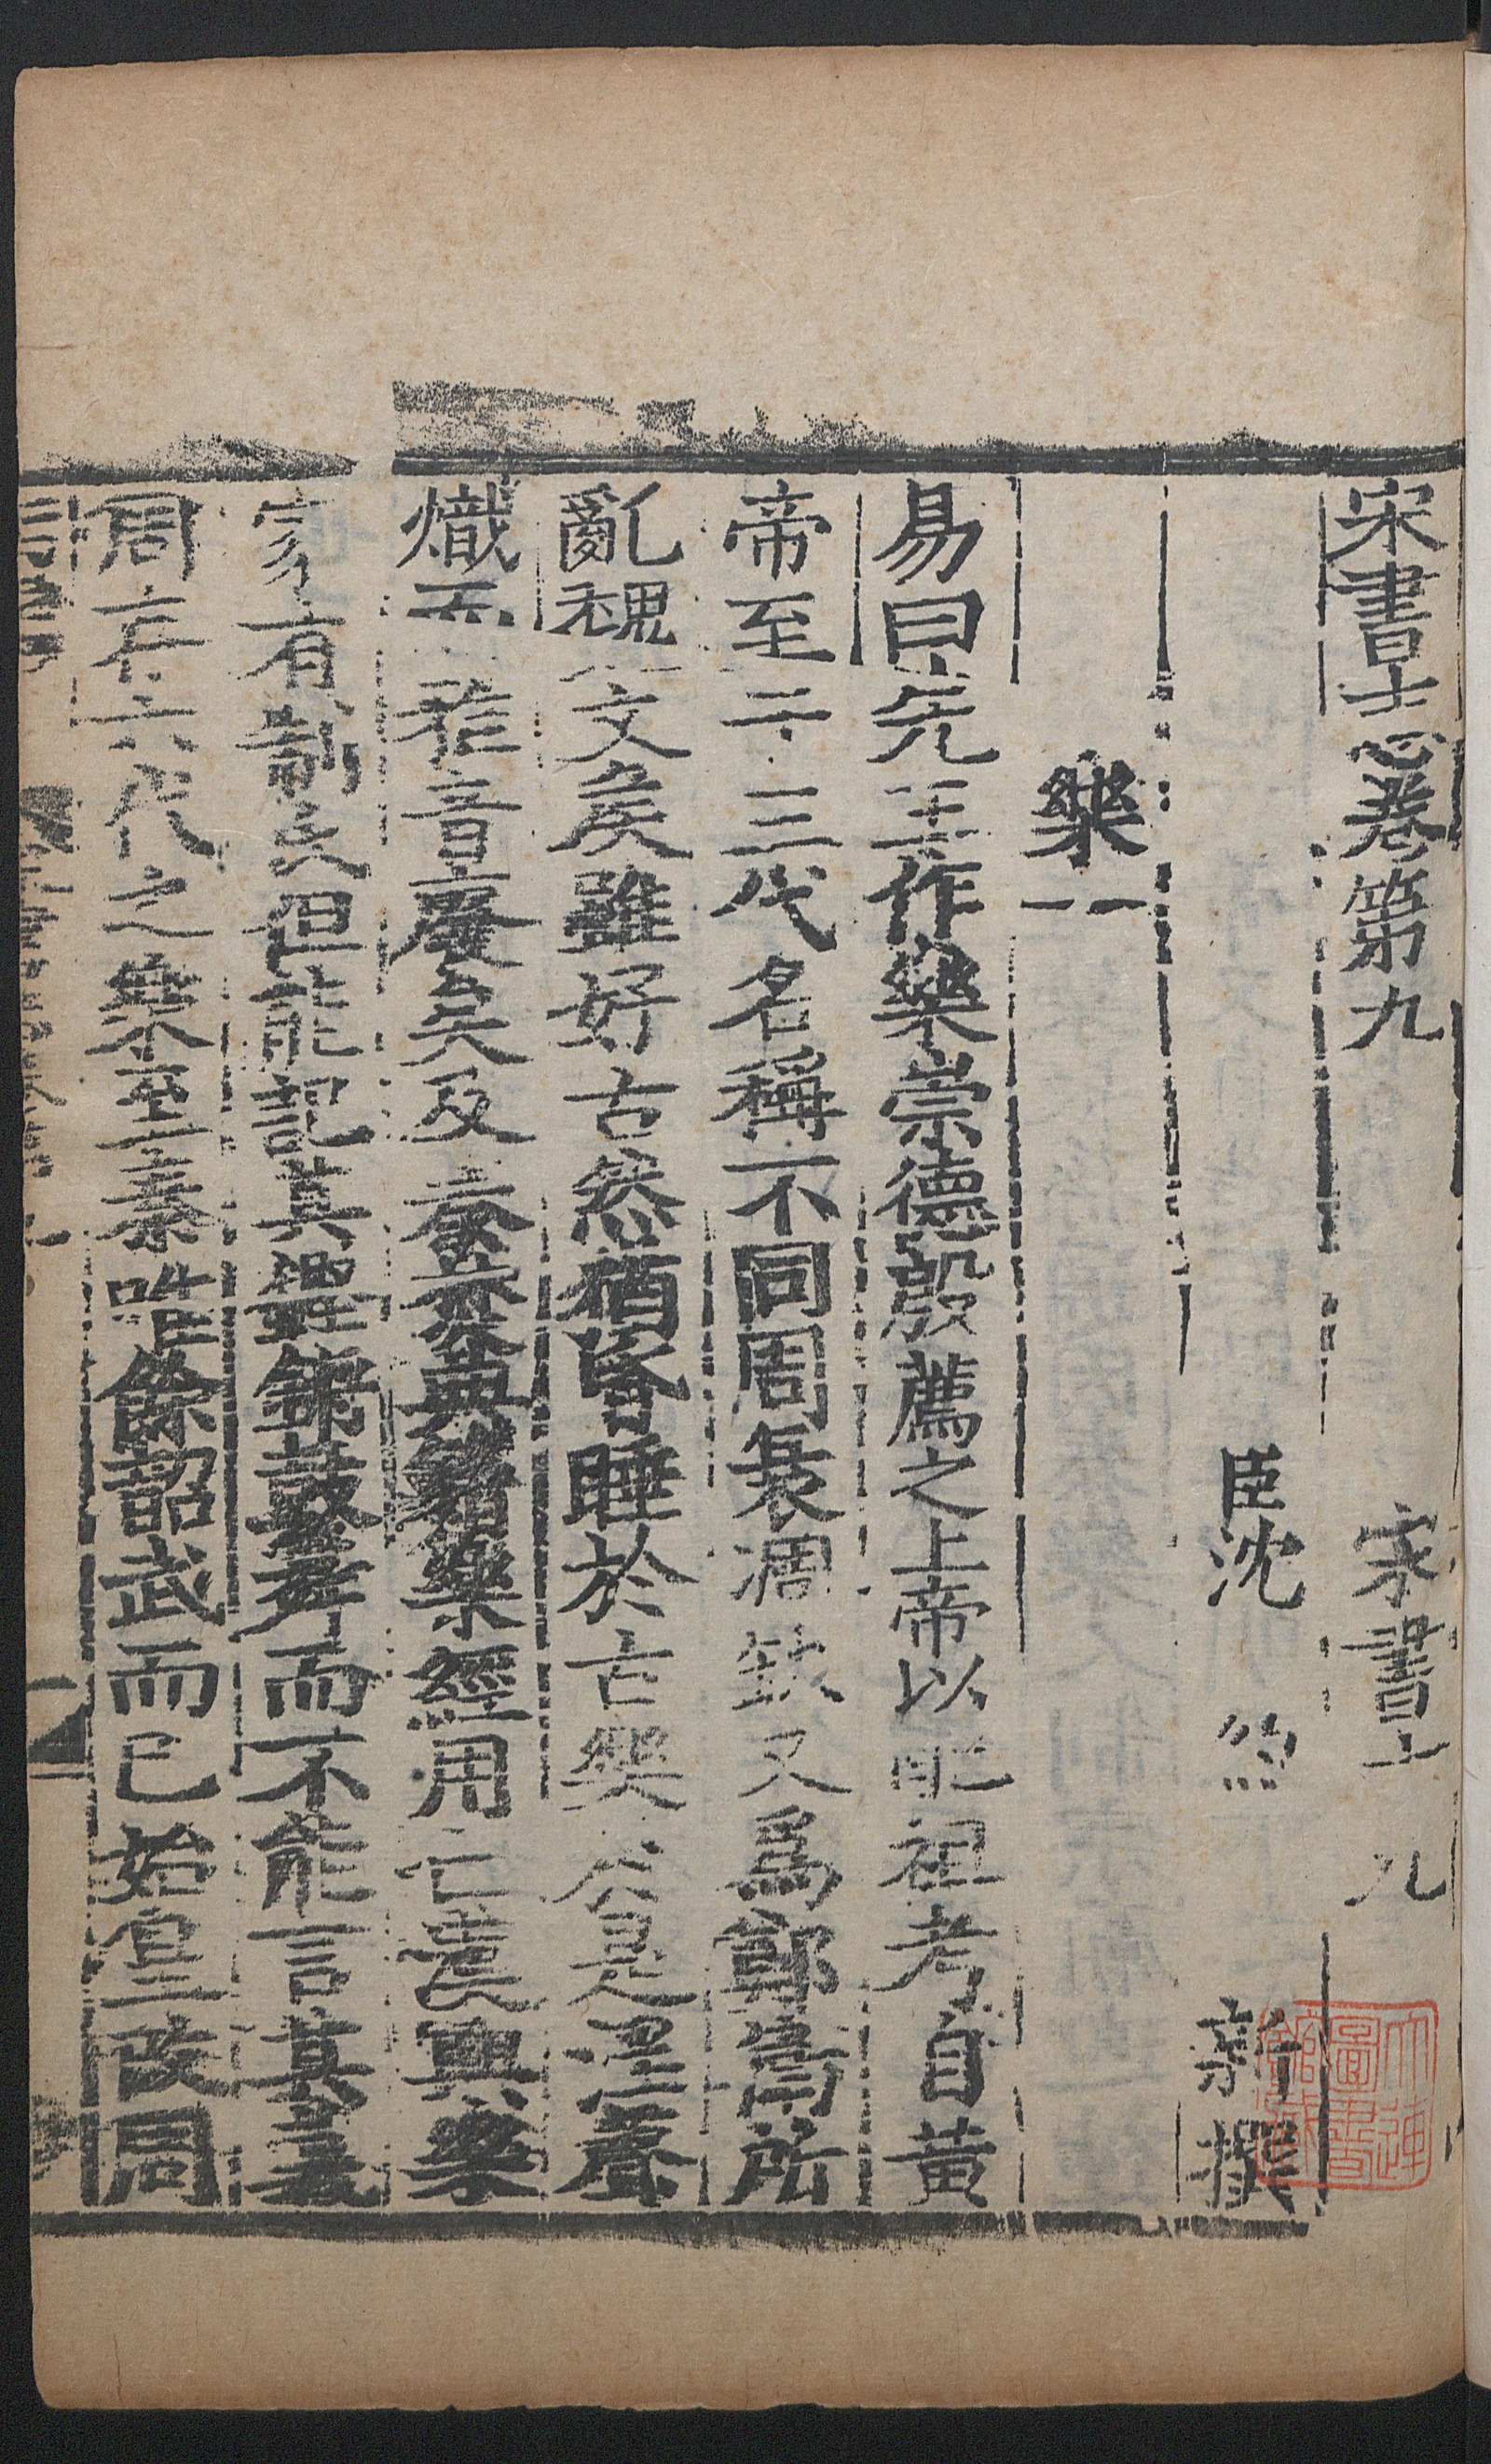 宋書志卷第九　宋書十九
臣沈約新撰
樂一
易曰先王作樂崇德殷薦之上帝以配祖考自黃
帝至于三代名稱不同周衰凋缺又爲鄭衛所
亂魏文矦雖好古然猶昏睡於古樂於是淫聲
熾而雅音廢矣及秦焚典籍樂經用亡漢興樂
家有制氏但能記其鏗鏘鼓舞而不能言其義
周存六代之樂至秦唯餘韶武而已始皇改周
大連圖書館藏